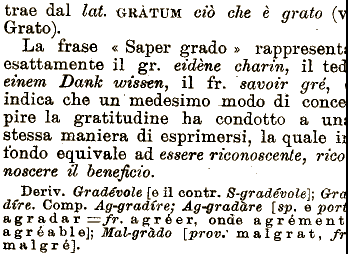 trae dal lat. GRÀTUM ciò che è grato (v
Grato).
La frase « Saper grado » rappresent
esattamente il gr. eidène charin, il ted
einem Dank wissen, il fr. savoir gré,
indica che un medesimo modo di conce
pire la gratitudine ha condotto a un
stessa maniera di esprimersi, la quale i
fondo equivale ad essere riconoscente, rico
noscere il beneficio.
Deriv. Gradévole [e il contr. S-gradévole]; Gra
díre. Comp. Ag-gradíre; Ag-gradàre [sp. e port
agradar = fr. agréer, onde agrément
agréable]; Mal-gràdo [prov. malgrat, fr
malgré].